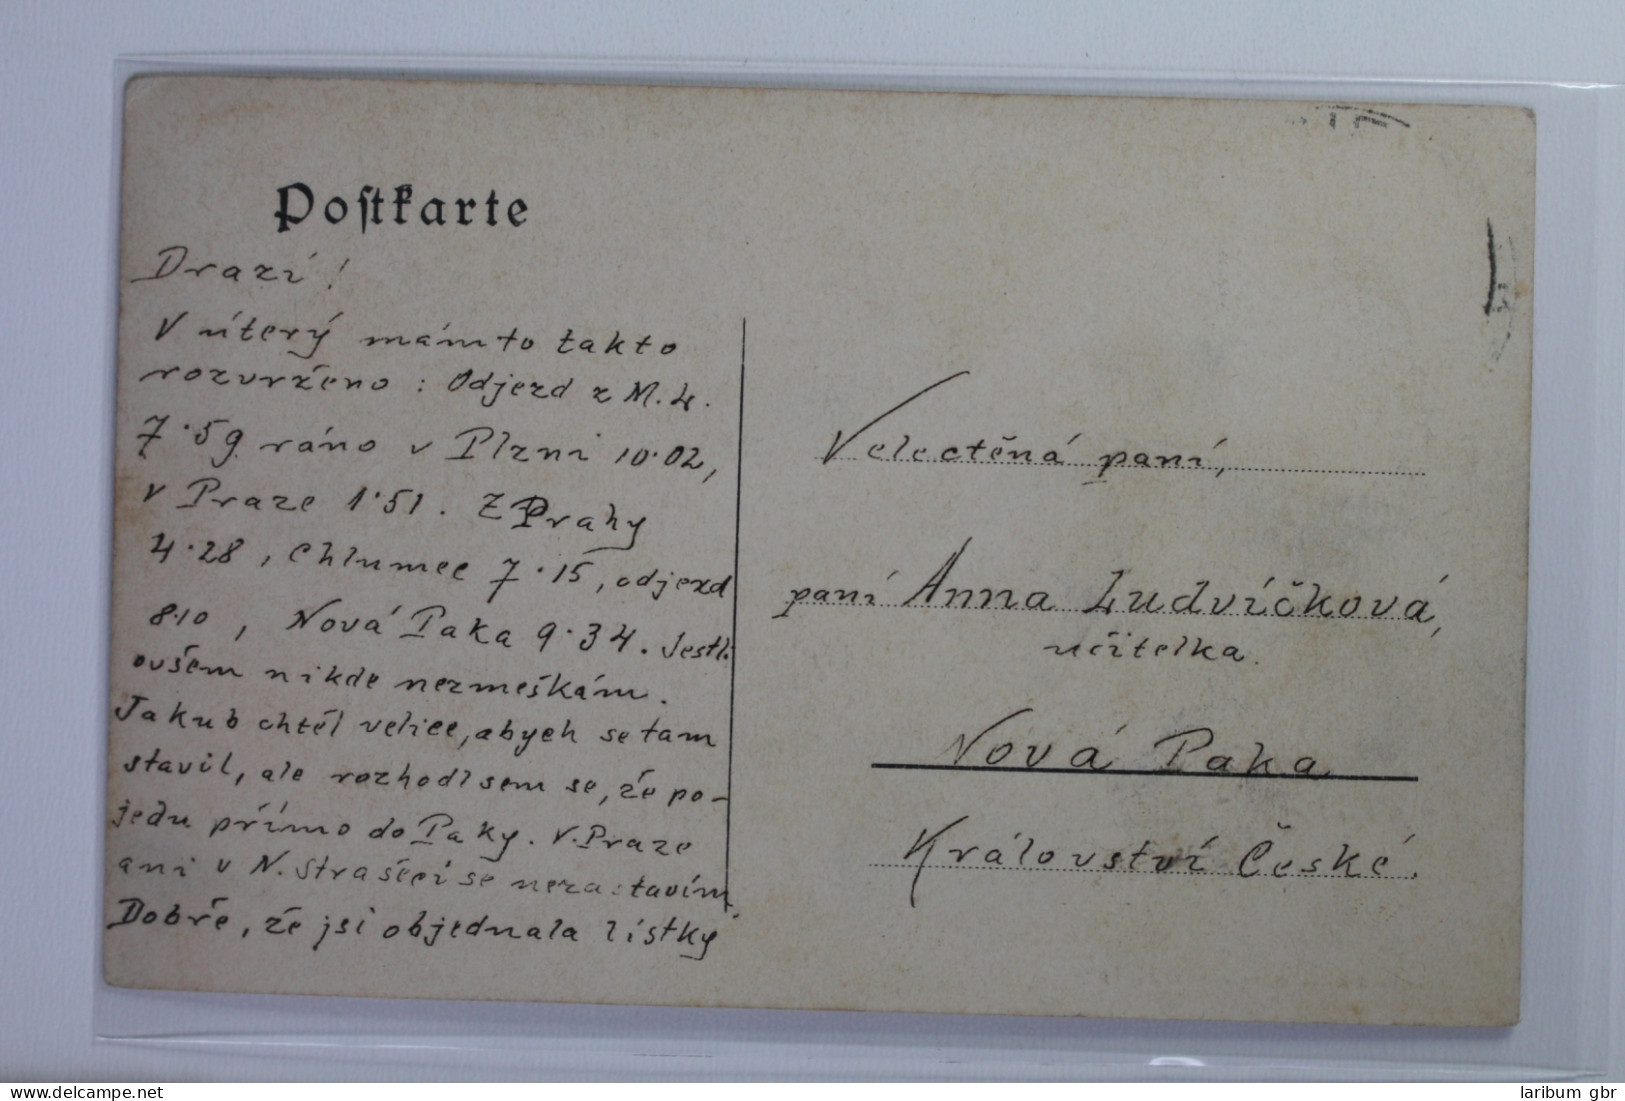 Postkarte
Drazí!
V úterý mám to takto
rozvrženo: Odjezd z M. L.
7·59 ráno v Plzni 10·02,
v Praze 1·51. Z Prahy
4·28, Chlumec 7·15, odjezd
8·10, Nová Paka 9·34. Jestli
ovšem nikde nezmeškám.
Jakub chtěl velice, abych se tam
stavil, ale rozhodl sem se, že po-
jedu přímo do Paky. V Praze
ani v N. Strašecí se nezastavím.
Dobře, že jsi objednala lístky
Velectěná paní,
paní Anna Ludvíčková,
učitelka.
Nová Paka
Království České.
laribum gbr